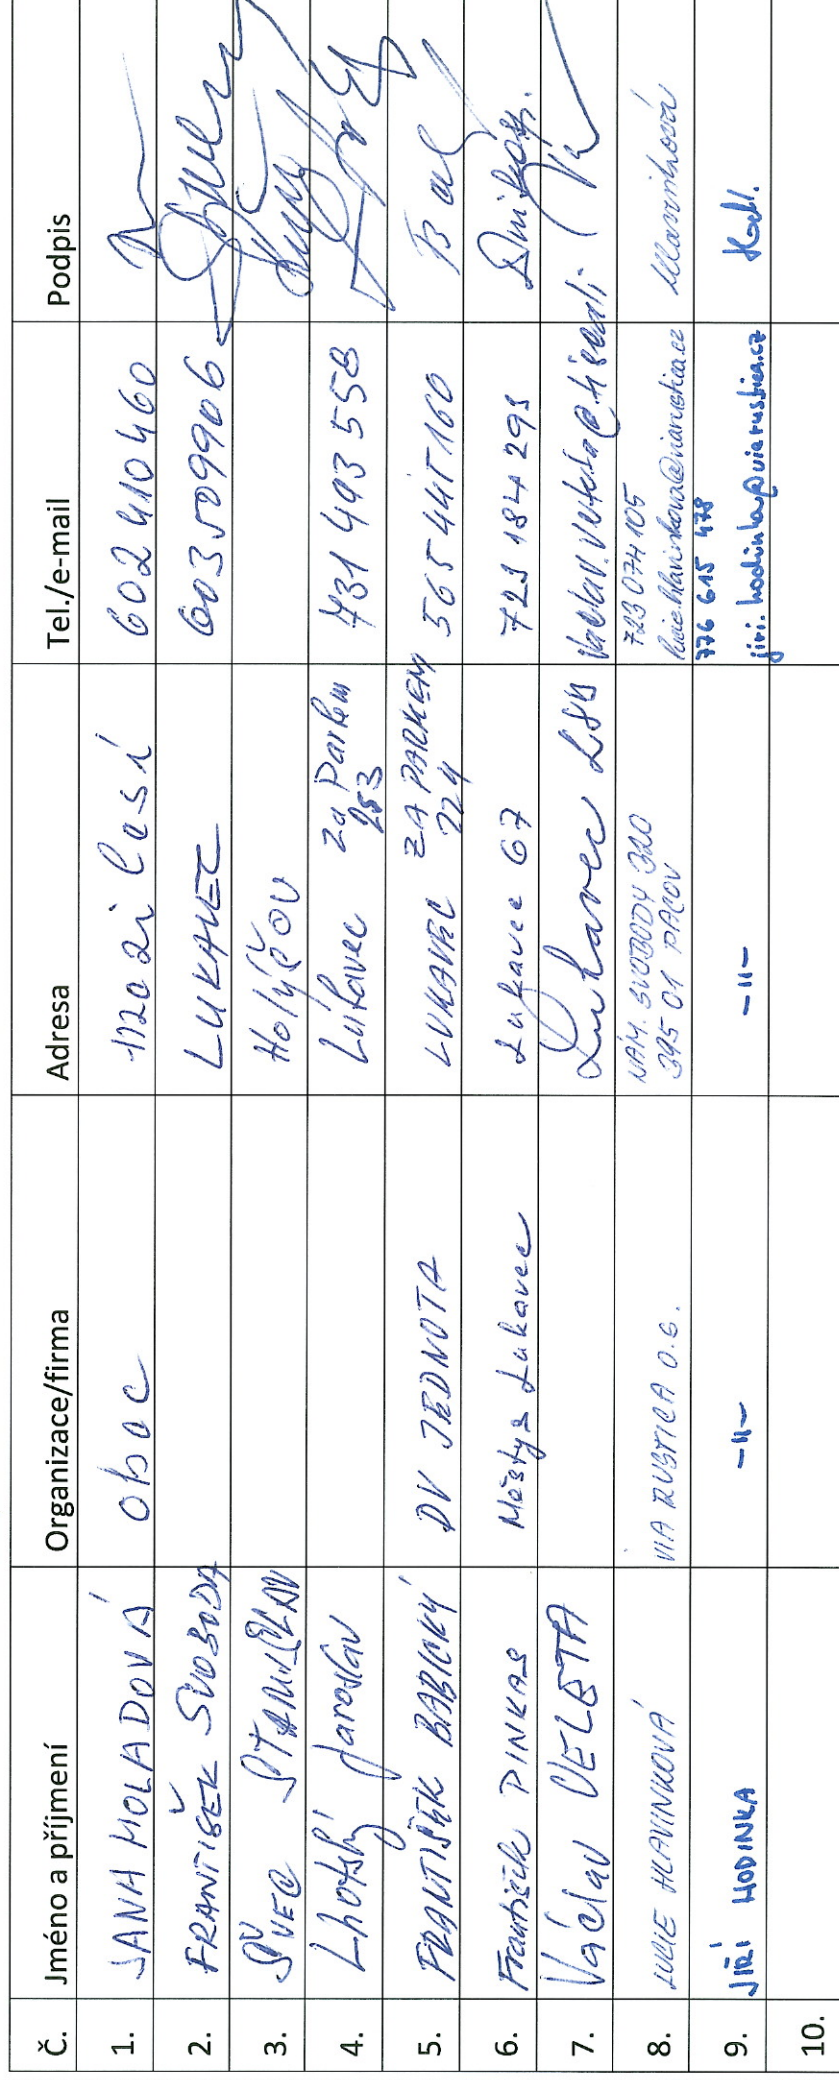 Č. Jméno a příjmení Organizace/firma Adresa Tel./e-mail Podpis
1. JANA HOLADOVÁ obec Mezilesí 602 410 460
2. FRANTIŠEK SVOBODA LUKAVEC 603 509906
3. ŠVEC STANISLAV Holýšov
4. Lhotský Jaroslav Lukavec Za Parkem 253 731 493 558
5. FRANTIŠEK BABICKÝ DV JEDNOTA LUKAVEC ZA PARKEM 224 565 445 160
6. František PINKAS Městys Lukavec Lukavec 67 723 184 293
7. Václav VELETA Lukavec
8. LUCIE HLAVINKOVÁ VIA RUSTICA O.S. NÁM. SVOBODY 320
395 01 PACOV
723 074 105
lucie.hlavinkova@viarustica.cz Hlavinková
9. JIŘÍ HODINKA -||- -||- 776 615 478
jiri.hodinka@viarustica.cz Hodl.
10.